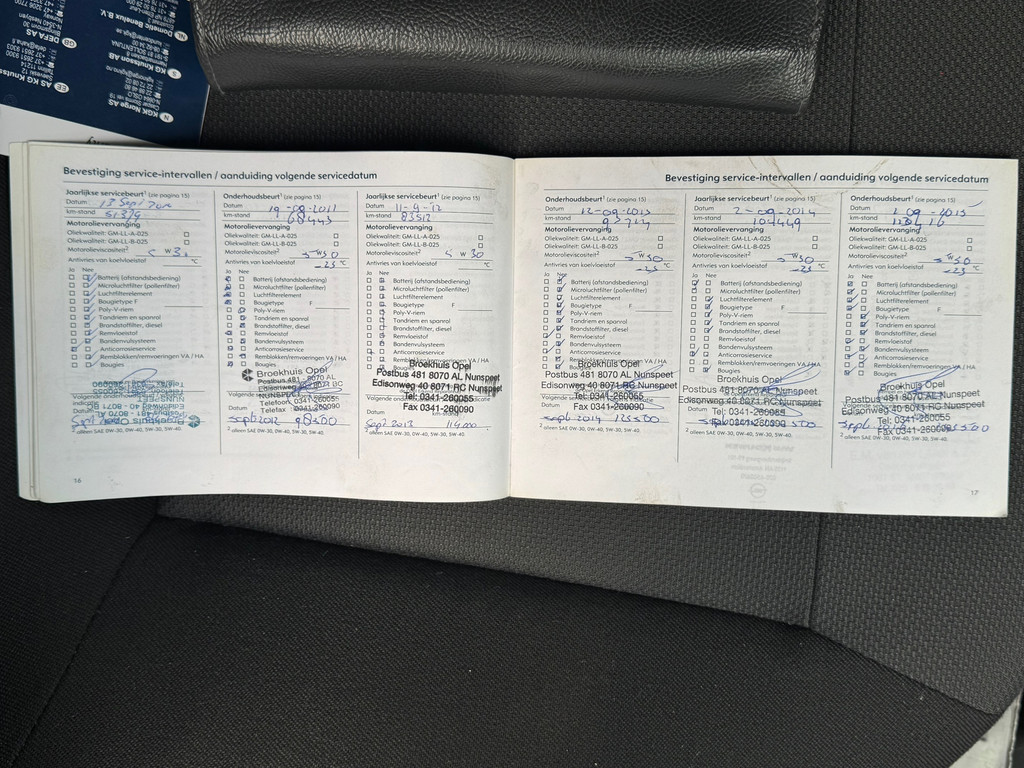 Bevestiging service-intervallen / aanduiding volgende servicedatum
Jaarlijkse servicebeurt¹ (zie pagina 15)
Datum 13 Sept
km-stand 51379
Motorolievervanging
Oliekwaliteit: GM-LL-A-025
Oliekwaliteit: GM-LL-B-025
Motorolieviscositeit²
Antivries van koelvloeistof °C
Ja Nee
Batterij (afstandsbediening)
Microluchtfilter (pollenfilter)
Luchtfilterelement
Bougietype F
Poly-V-riem
Tandriem en spanrol
Brandstoffilter, diesel
Remvloeistof
Bandenvulsysteem
Anticorrosieservice
Remblokken/remvoeringen VA / HA
Bougies
² alleen SAE 0W-30, 0W-40, 5W-30, 5W-40.
16
Onderhoudsbeurt¹ (zie pagina 15)
Datum 19-09-2011
km-stand 68443
Motorolievervanging
Oliekwaliteit: GM-LL-A-025
Oliekwaliteit: GM-LL-B-025
Motorolieviscositeit² 5W30
Antivries van koelvloeistof -25 °C
Ja Nee
Batterij (afstandsbediening)
Microluchtfilter (pollenfilter)
Luchtfilterelement
Bougietype F
Poly-V-riem
Tandriem en spanrol
Brandstoffilter, diesel
Remvloeistof
Bandenvulsysteem
Anticorrosieservice
Remblokken/remvoeringen VA / HA
Bougies
Broekhuis Opel
Postbus 481 8070 AL
Edisonweg 8071 RC
NUNSPEET
Telefoon 0341-260055
Telefax 0341-260090
Datum sept 2012 98500
² alleen SAE 0W-30, 0W-40, 5W-30, 5W-40.
Jaarlijkse servicebeurt¹ (zie pagina 15)
Datum 11-9-12
km-stand 83512
Motorolievervanging
Oliekwaliteit: GM-LL-A-025
Oliekwaliteit: GM-LL-B-025
Motorolieviscositeit² 5 w 30
Antivries van koelvloeistof °C
Ja Nee
Batterij (afstandsbediening)
Microluchtfilter (pollenfilter)
Luchtfilterelement
Bougietype F
Poly-V-riem
Tandriem en spanrol
Brandstoffilter, diesel
Remvloeistof
Bandenvulsysteem
Anticorrosieservice
Remblokken/remvoeringen VA / HA
Bougies
Broekhuis Opel
Postbus 481 8070 AL Nunspeet
Edisonweg 40 8071 RC Nunspeet
Tel: 0341-260055
Fax 0341-260090
Datum Sept 2013 114.000
² alleen SAE 0W-30, 0W-40, 5W-30, 5W-40.
Bevestiging service-intervallen / aanduiding volgende servicedatum
Onderhoudsbeurt¹ (zie pagina 15)
Datum 12-09-2013
km-stand 93717
Motorolievervanging
Oliekwaliteit: GM-LL-A-025
Oliekwaliteit: GM-LL-B-025
Motorolieviscositeit² 5W30
Antivries van koelvloeistof -25 °C
Ja Nee
Batterij (afstandsbediening)
Microluchtfilter (pollenfilter)
Luchtfilterelement
Bougietype F
Poly-V-riem
Tandriem en spanrol
Brandstoffilter, diesel
Remvloeistof
Bandenvulsysteem
Anticorrosieservice
Remblokken/remvoeringen VA / HA
Bougies
Broekhuis Opel
Postbus 481 8070 AL Nunspeet
Edisonweg 40 8071 RC Nunspeet
Tel: 0341-260055
Fax 0341-260090
Datum sept 2014 123500
² alleen SAE 0W-30, 0W-40, 5W-30, 5W-40.
Jaarlijkse servicebeurt¹ (zie pagina 15)
Datum 2-09-2014
km-stand 104449
Motorolievervanging
Oliekwaliteit: GM-LL-A-025
Oliekwaliteit: GM-LL-B-025
Motorolieviscositeit² 5W30
Antivries van koelvloeistof -25 °C
Ja Nee
Batterij (afstandsbediening)
Microluchtfilter (pollenfilter)
Luchtfilterelement
Bougietype F
Poly-V-riem
Tandriem en spanrol
Brandstoffilter, diesel
Remvloeistof
Bandenvulsysteem
Anticorrosieservice
Remblokken/remvoeringen VA / HA
Bougies
Broekhuis Opel
Postbus 481 8070 AL Nunspeet
Edisonweg 40 8071 RC Nunspeet
Tel: 0341-260055
Fax 0341-260090
² alleen SAE 0W-30, 0W-40, 5W-30, 5W-40.
Onderhoudsbeurt¹ (zie pagina 15)
Datum 09-2015
km-stand
Motorolievervanging
Oliekwaliteit: GM-LL-A-025
Oliekwaliteit: GM-LL-B-025
Motorolieviscositeit² 5W30
Antivries van koelvloeistof -25 °C
Ja Nee
Batterij (afstandsbediening)
Microluchtfilter (pollenfilter)
Luchtfilterelement
Bougietype F
Poly-V-riem
Tandriem en spanrol
Brandstoffilter, diesel
Remvloeistof
Bandenvulsysteem
Anticorrosieservice
Remblokken/remvoeringen VA / HA
Bougies
Broekhuis Opel
Postbus 481 8070 AL Nunspeet
Edisonweg 40 8071 RC Nunspeet
Tel: 0341-260055
Fax 0341-260090
² alleen SAE 0W-30, 0W-40, 5W-30, 5W-40.
17
N KGK Norge AS
S KG Knutsson AB
NL Dometic Benelux B.V.
EE AS KG Knutsson
GB DEFA AS